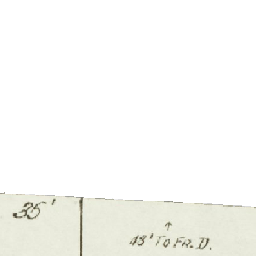 35'
↑
43' TO FR. D.